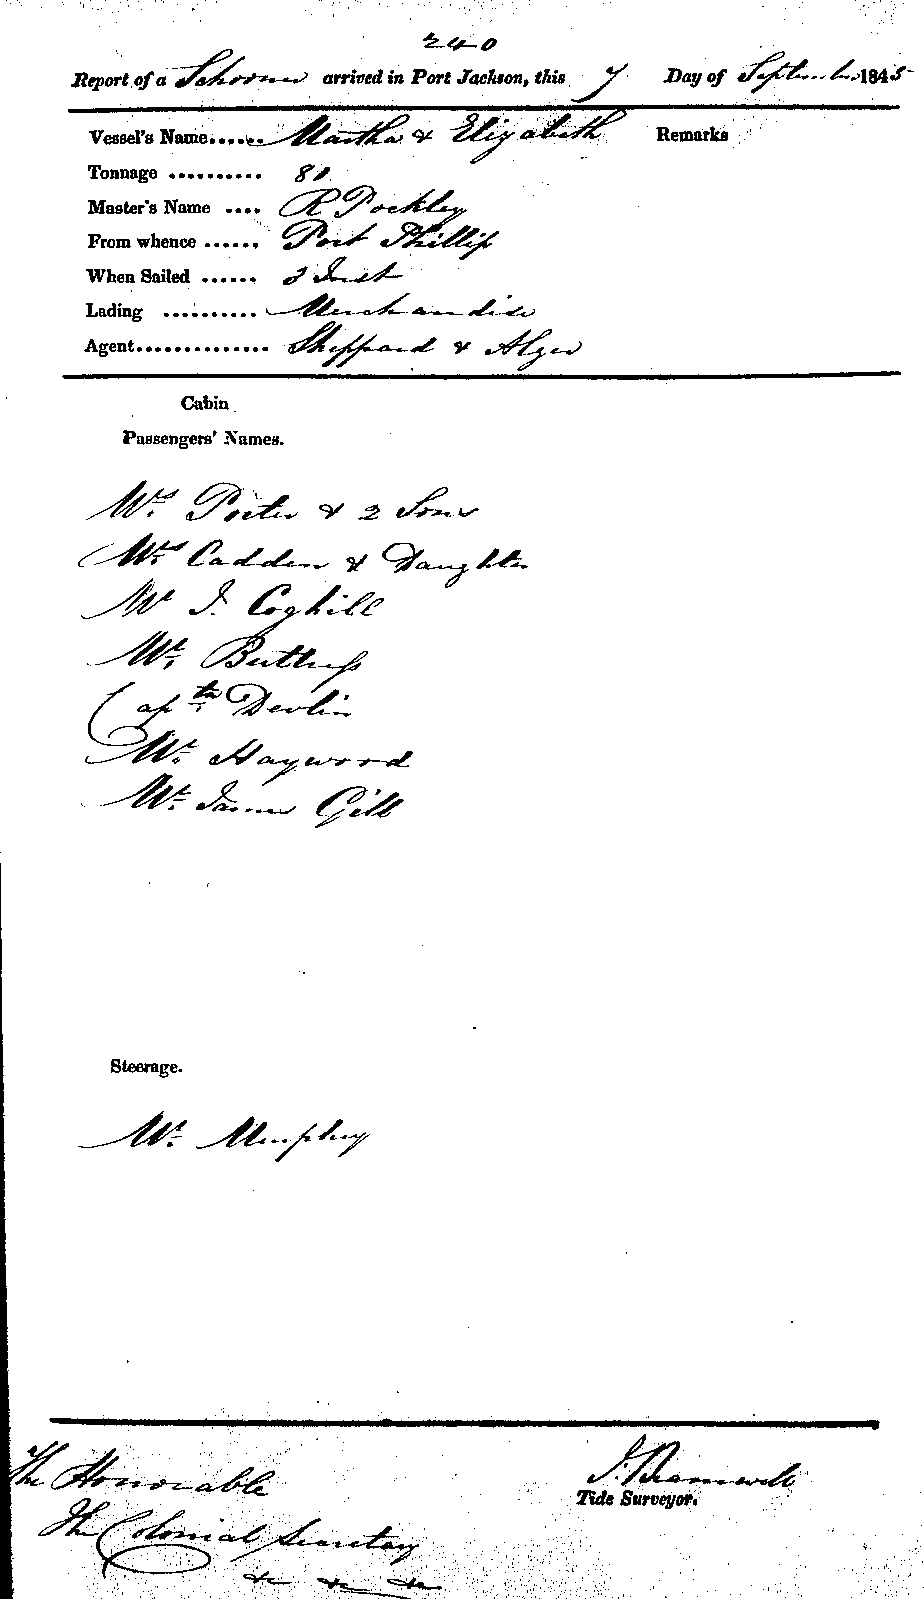 240
Report of a Schooner arrived in Port Jackson, this 7 Day of September 1845
Vessel's Name...... Martha & Elizabeth Remarks
Tonnage .......... 80
Master's Name .... R Pockley
From whence ...... Port Phillip
When Sailed ...... 3 Inst
Lading .......... Merchandise
Agent.............. Sheppard & Alger
Cabin
Passengers' Names.
Mrs. Porter & 2 Sons
Mrs. Cadden & Daughter
Mr J. Coghill
Mr. Buttress
Captn. Devlin
Mr. Haywood
Mr. James Gill
Steerage.
Mr. Murphy
The Honorable
The Colonial Secretary
&c &c &c
J. Bramwell
Tide Surveyor.